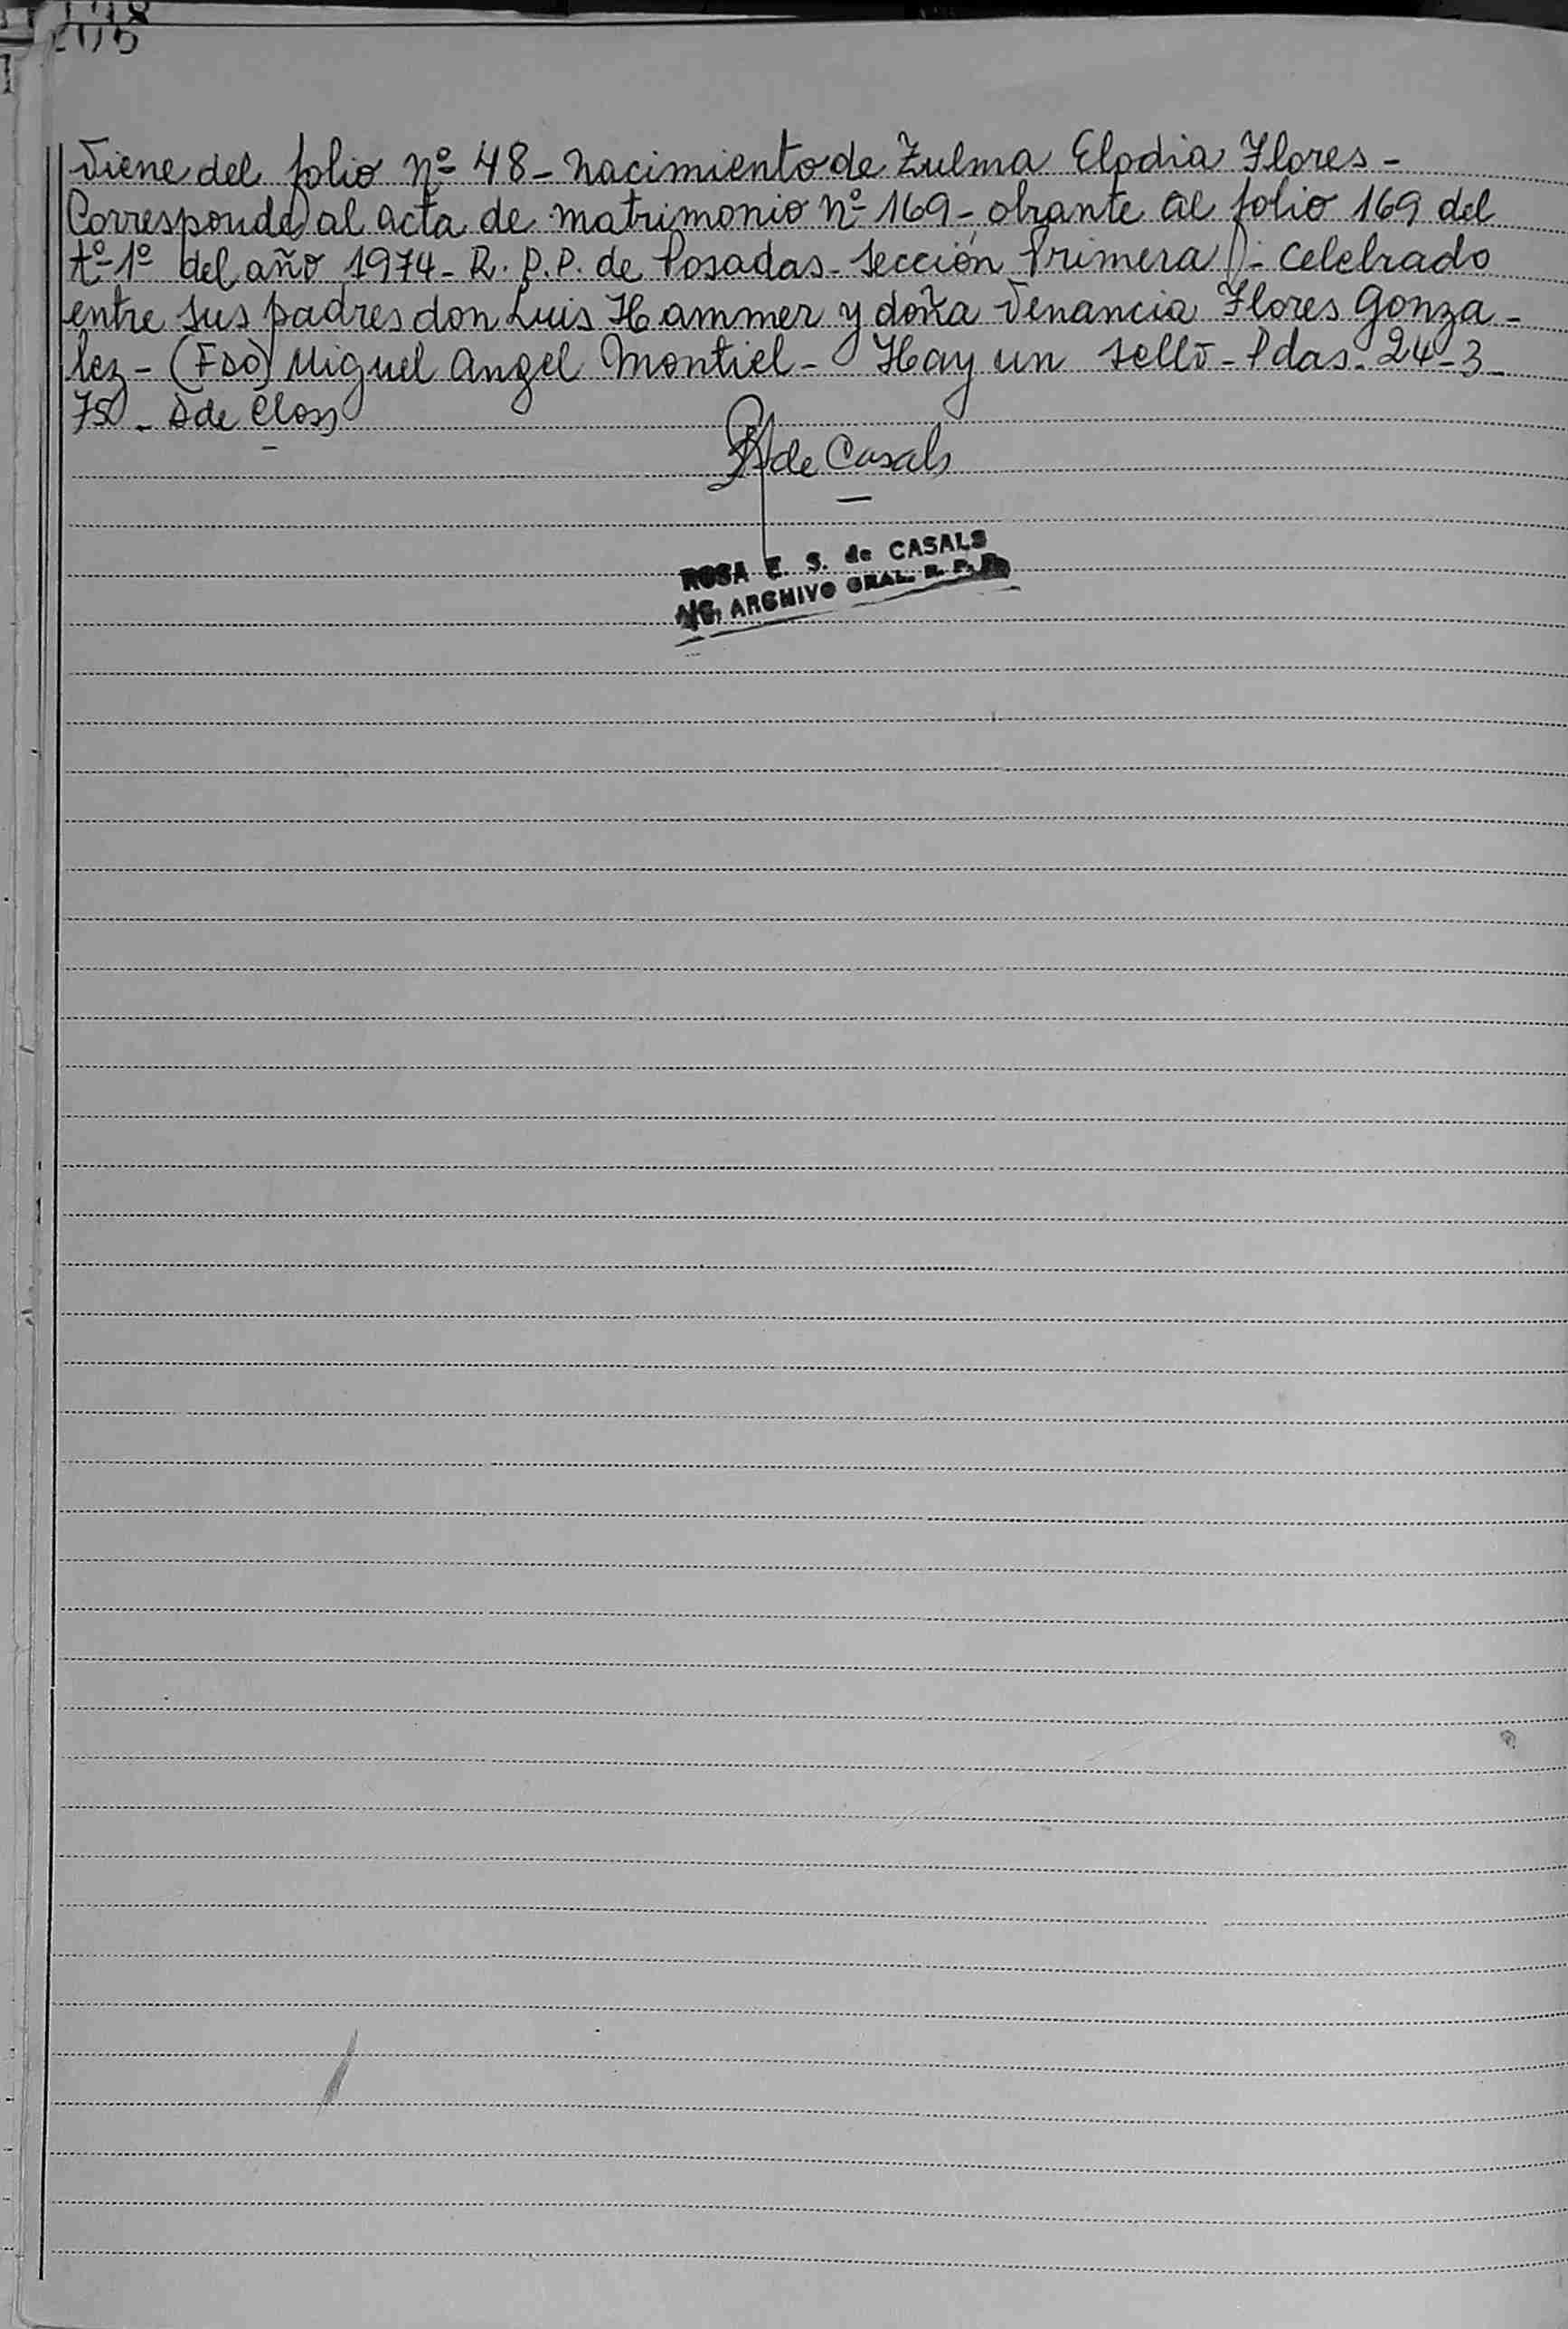 Viene del folio Nº 48 - Nacimiento de Zulma Elodia Flores -
Corresponde al acta de matrimonio Nº 169 - obrante al folio 169 del
tº 1º del año 1974 - R. P. P. de Posadas - Sección Primera - celebrado
entre sus padres don Luis Hammer y doña Venancia Flores Gonza -
lez - (FDO) Miguel Angel Montiel - Hay un sello - Pdas. 24 - 3 -
75 - de Closs
de Casals
ROSA E. S. de CASALS
ARCHIVO GRAL. R. P. P.